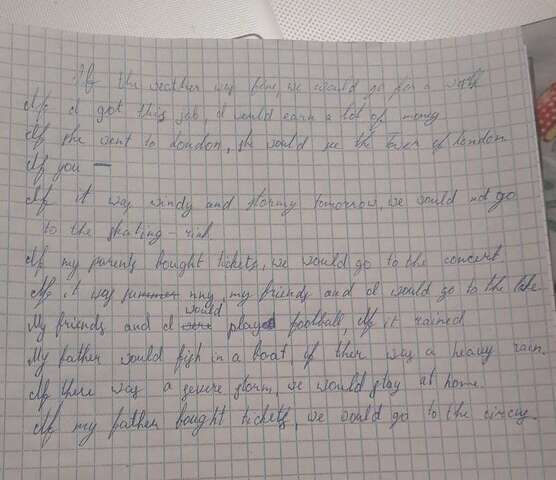 If the weather was fine, we would go for a walk
If I got this job, I would earn a lot of money
If she went to London, she would see the Tower of London
If you —
If it was windy and stormy tomorrow, we would not go
to the skating-rink
If my parents bought tickets, we would go to the concert
If it was nny, my friends and I would go to the lake
My friends and I would play football, if it rained
My father would fish in a boat, if ther was a heavy rain.
If there was a severe storm, we would stay at home.
If my father bought tickets, we would go to the circus.